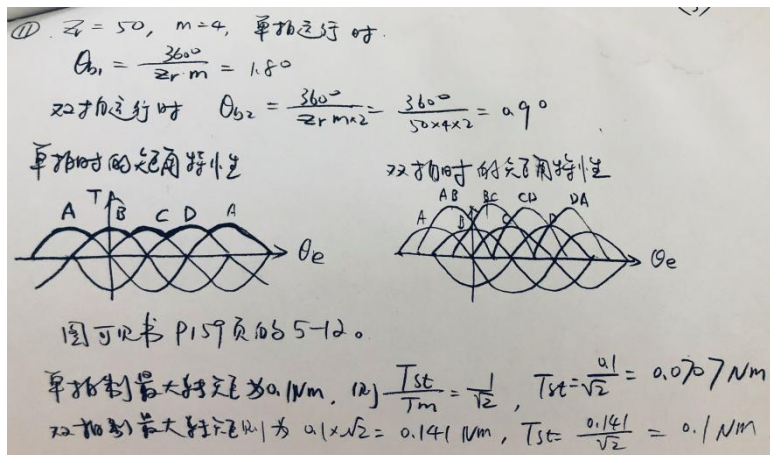 ⑪. Zr = 50, m=4, 单拍运行时.
θb1 = 360°/Zr·m = 1.8°
双拍运行时 θb2 = 360°/Zr m×2 = 360°/50×4×2 = 0.9°
单拍时的矩角特性 双拍时的矩角特性
A T B C D A θe
AB BC CD DA
A B C D θe
图可见书P159页的5-12。
单拍制最大转矩为0.1Nm, 则 Tst/Tm = 1/√2, Tst = 0.1/√2 = 0.0707Nm
双拍制最大转矩则为 0.1×√2 = 0.141 Nm, Tst = 0.141/√2 = 0.1Nm